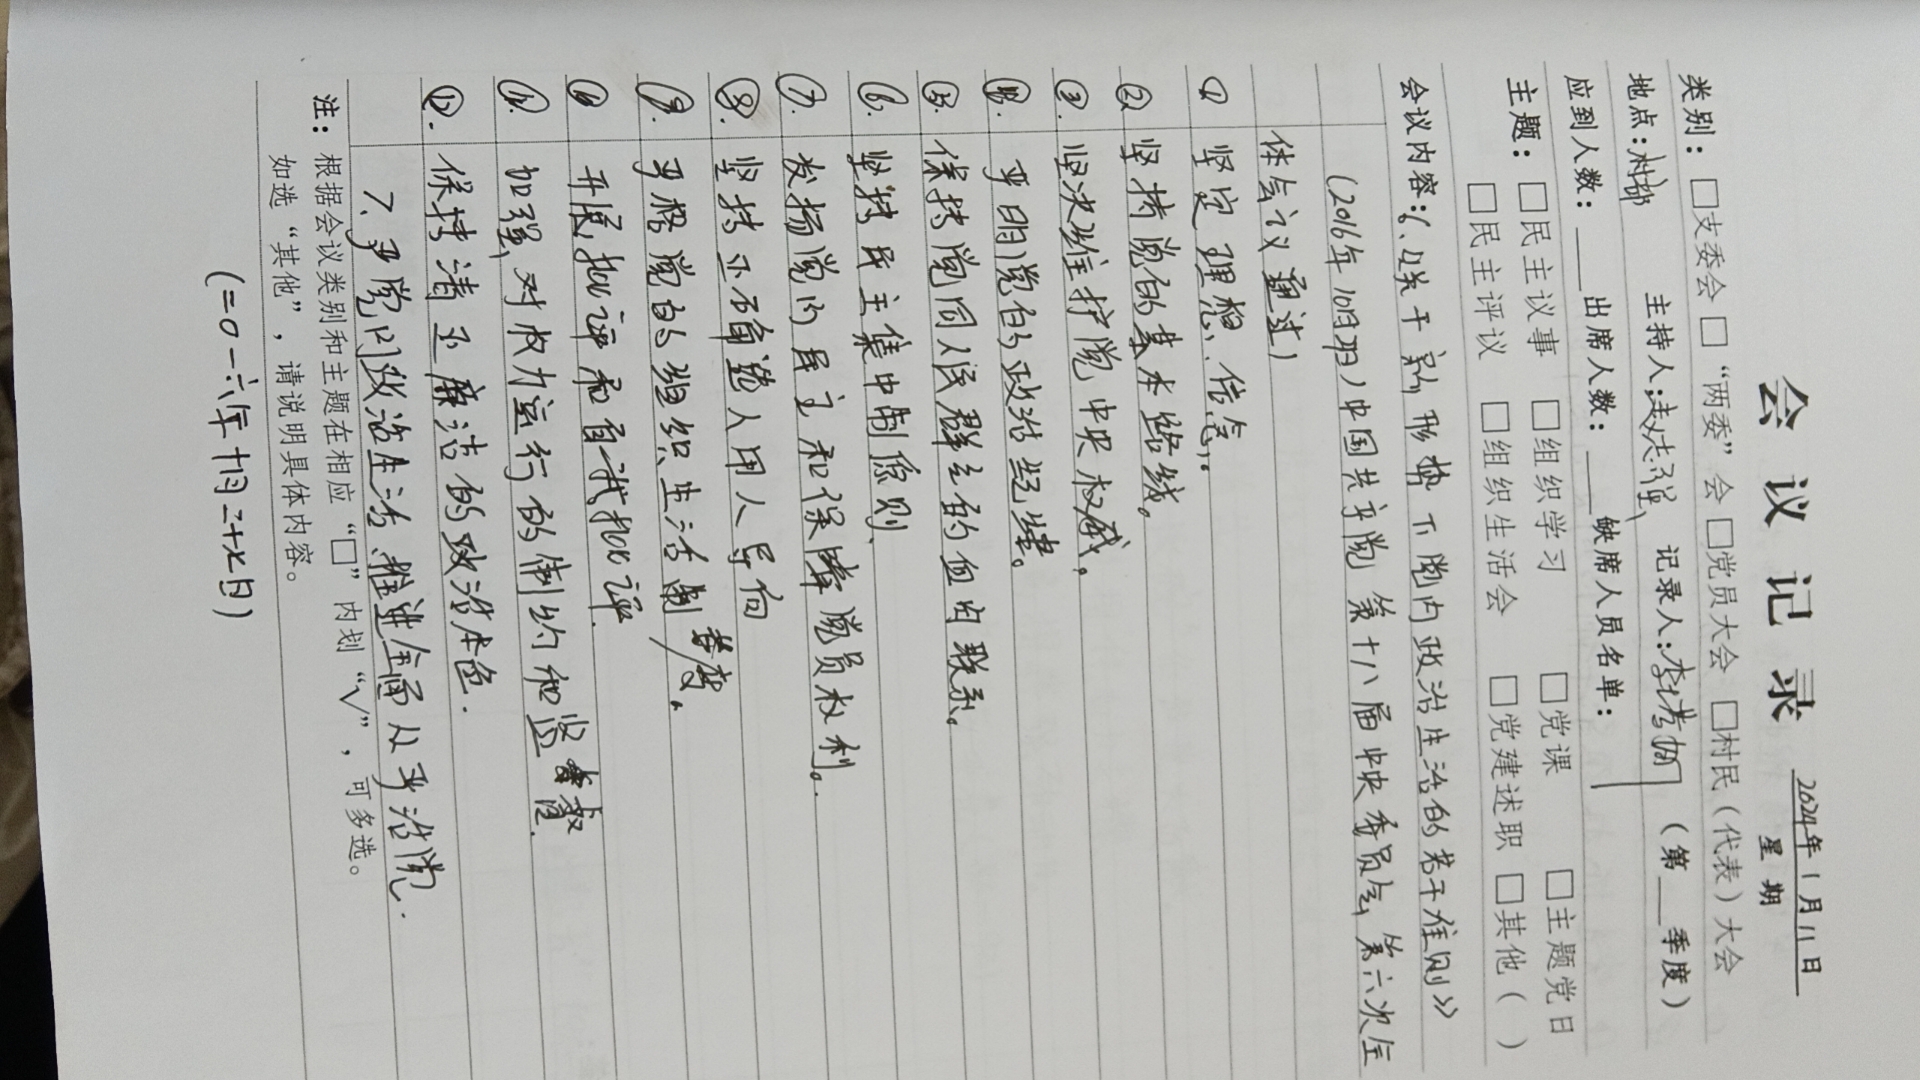 会 议 记 录
2024年1月11日
星期
类别：□支委会 □“两委”会 □党员大会 □村民（代表）大会
地点:村部 主持人:赵志强 记录人:李培 （第___季度）
应到人数：____出席人数：____缺席人员名单：
主题：□民主议事 □组织学习 □党课 □主题党日
□民主评议 □组织生活会 □党建述职 □其他（ ）
会议内容:6、《关于新形势下党内政治生活的若干准则》
(2016年10月27日)中国共产党第十八届中央委员会第六次全
体会议通过)
① 坚定理想、信念。
② 坚持党的基本路线。
③. 坚决维护党中央权威。
④. 严明党的政治纪律。
⑤. 保持党同人民群众的血肉联系。
⑥. 坚持民主集中制原则.
⑦. 发扬党的民主和保障党员权利。
⑧. 坚持正确选人用人导向
⑨. 严格党的组织生活制度。
⑩ 开展批评和自我批评.
⑪. 加强对权力运行的制约和监督.
⑫. 保持清正廉洁的政治本色.
7、严党内政治生活、推进全面从严治党.
注：根据会议类别和主题在相应“□”内划“√”，可多选。
如选“其他”，请说明具体内容。
(二0一六年十月二十七日)